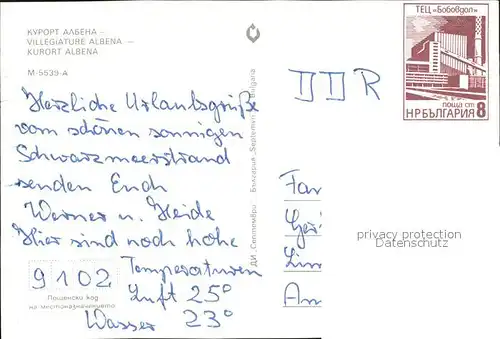 КУРОРТ АЛБЕНА –
VILLEGIATURE ALBENA –
KURORT ALBENA
M-5539-A
ТЕЦ „Бобовдол"
ПОЩА СТ 8
НРБЪЛГАРИЯ
DDR
Herzliche Urlaubsgrüße
vom schönen sonnigen
Schwarzmeerstrand
senden Euch
Werner u. Heide
Hier sind noch hohe
Temperaturen
Luft 25°
Wasser 23°
9102
Пощенски код
на местоназначението
ДИ „Септември" България „Septemvri" Bulgaria
Fam
privacy protection
Datenschutz